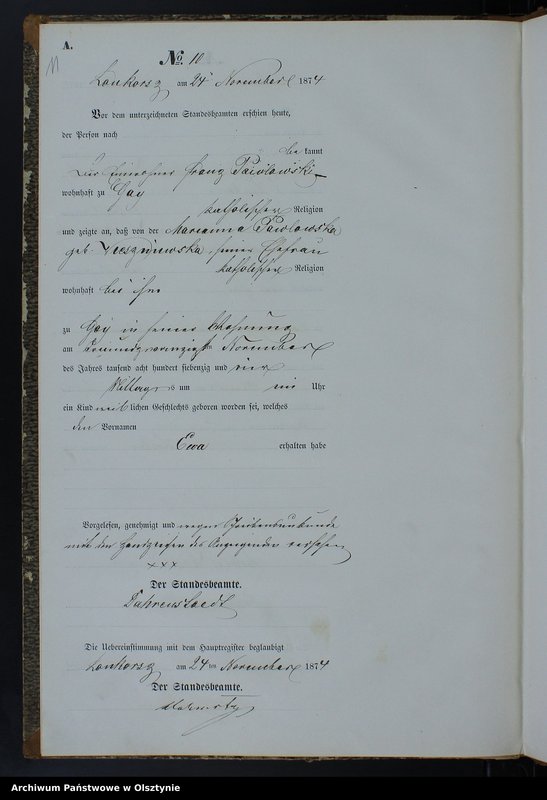 A.
11
No. 10
Lonkorsz am 24 November 1874
Vor dem unterzeichneten Standesbeamten erschien heute,
der Person nach
be kannt
Der Einwohner Franz Pawlowski
wohnhaft zu Gay
katholischer Religion
und zeigte an, daß von der Marianna Pawlowska
geb. seiner Ehefrau
katholischer Religion
wohnhaft bei ihm
zu Gay in seiner Wohnung
am November
des Jahres tausend acht hundert siebenzig und vier
Mittags um Uhr
ein Kind weib lichen Geschlechts geboren worden sei, welches
den Vornamen
Ewa erhalten habe
Vorgelesen, genehmigt und wegen Schreibensunkunde
mit den Handzeichen des Anzeigenden versehen
xxx
Der Standesbeamte.
Die Uebereinstimmung mit dem Hauptregister beglaubigt
Lonkorsz am 24ten November 1874
Der Standesbeamte.
Archiwum Państwowe w Olsztynie